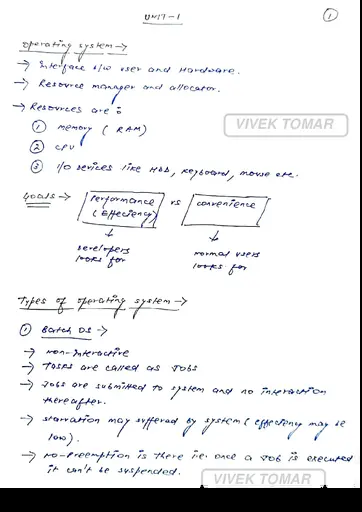 UNIT-1
1
operating system →
→ Interface b/w user and Hardware.
→ Resource manager and allocator.
→ Resources are :
① memory ( RAM)
VIVEK TOMAR
② CPU
③ I/o devices like Hdd, keyboard, mouse etc.
Goals → Performance (Effeciency) vs convenience
developers looks for
normal users looks for
Types of operating system →
① Batch OS →
→ non-Interactive
→ Tasks are called as Jobs
→ Jobs are submitted to system and no interaction
thereafter.
→ starvation may suffered by system ( effeciency may be
low).
→ no-preemption is there i.e. once a Job is executed
it can't be suspended.
VIVEK TOMAR